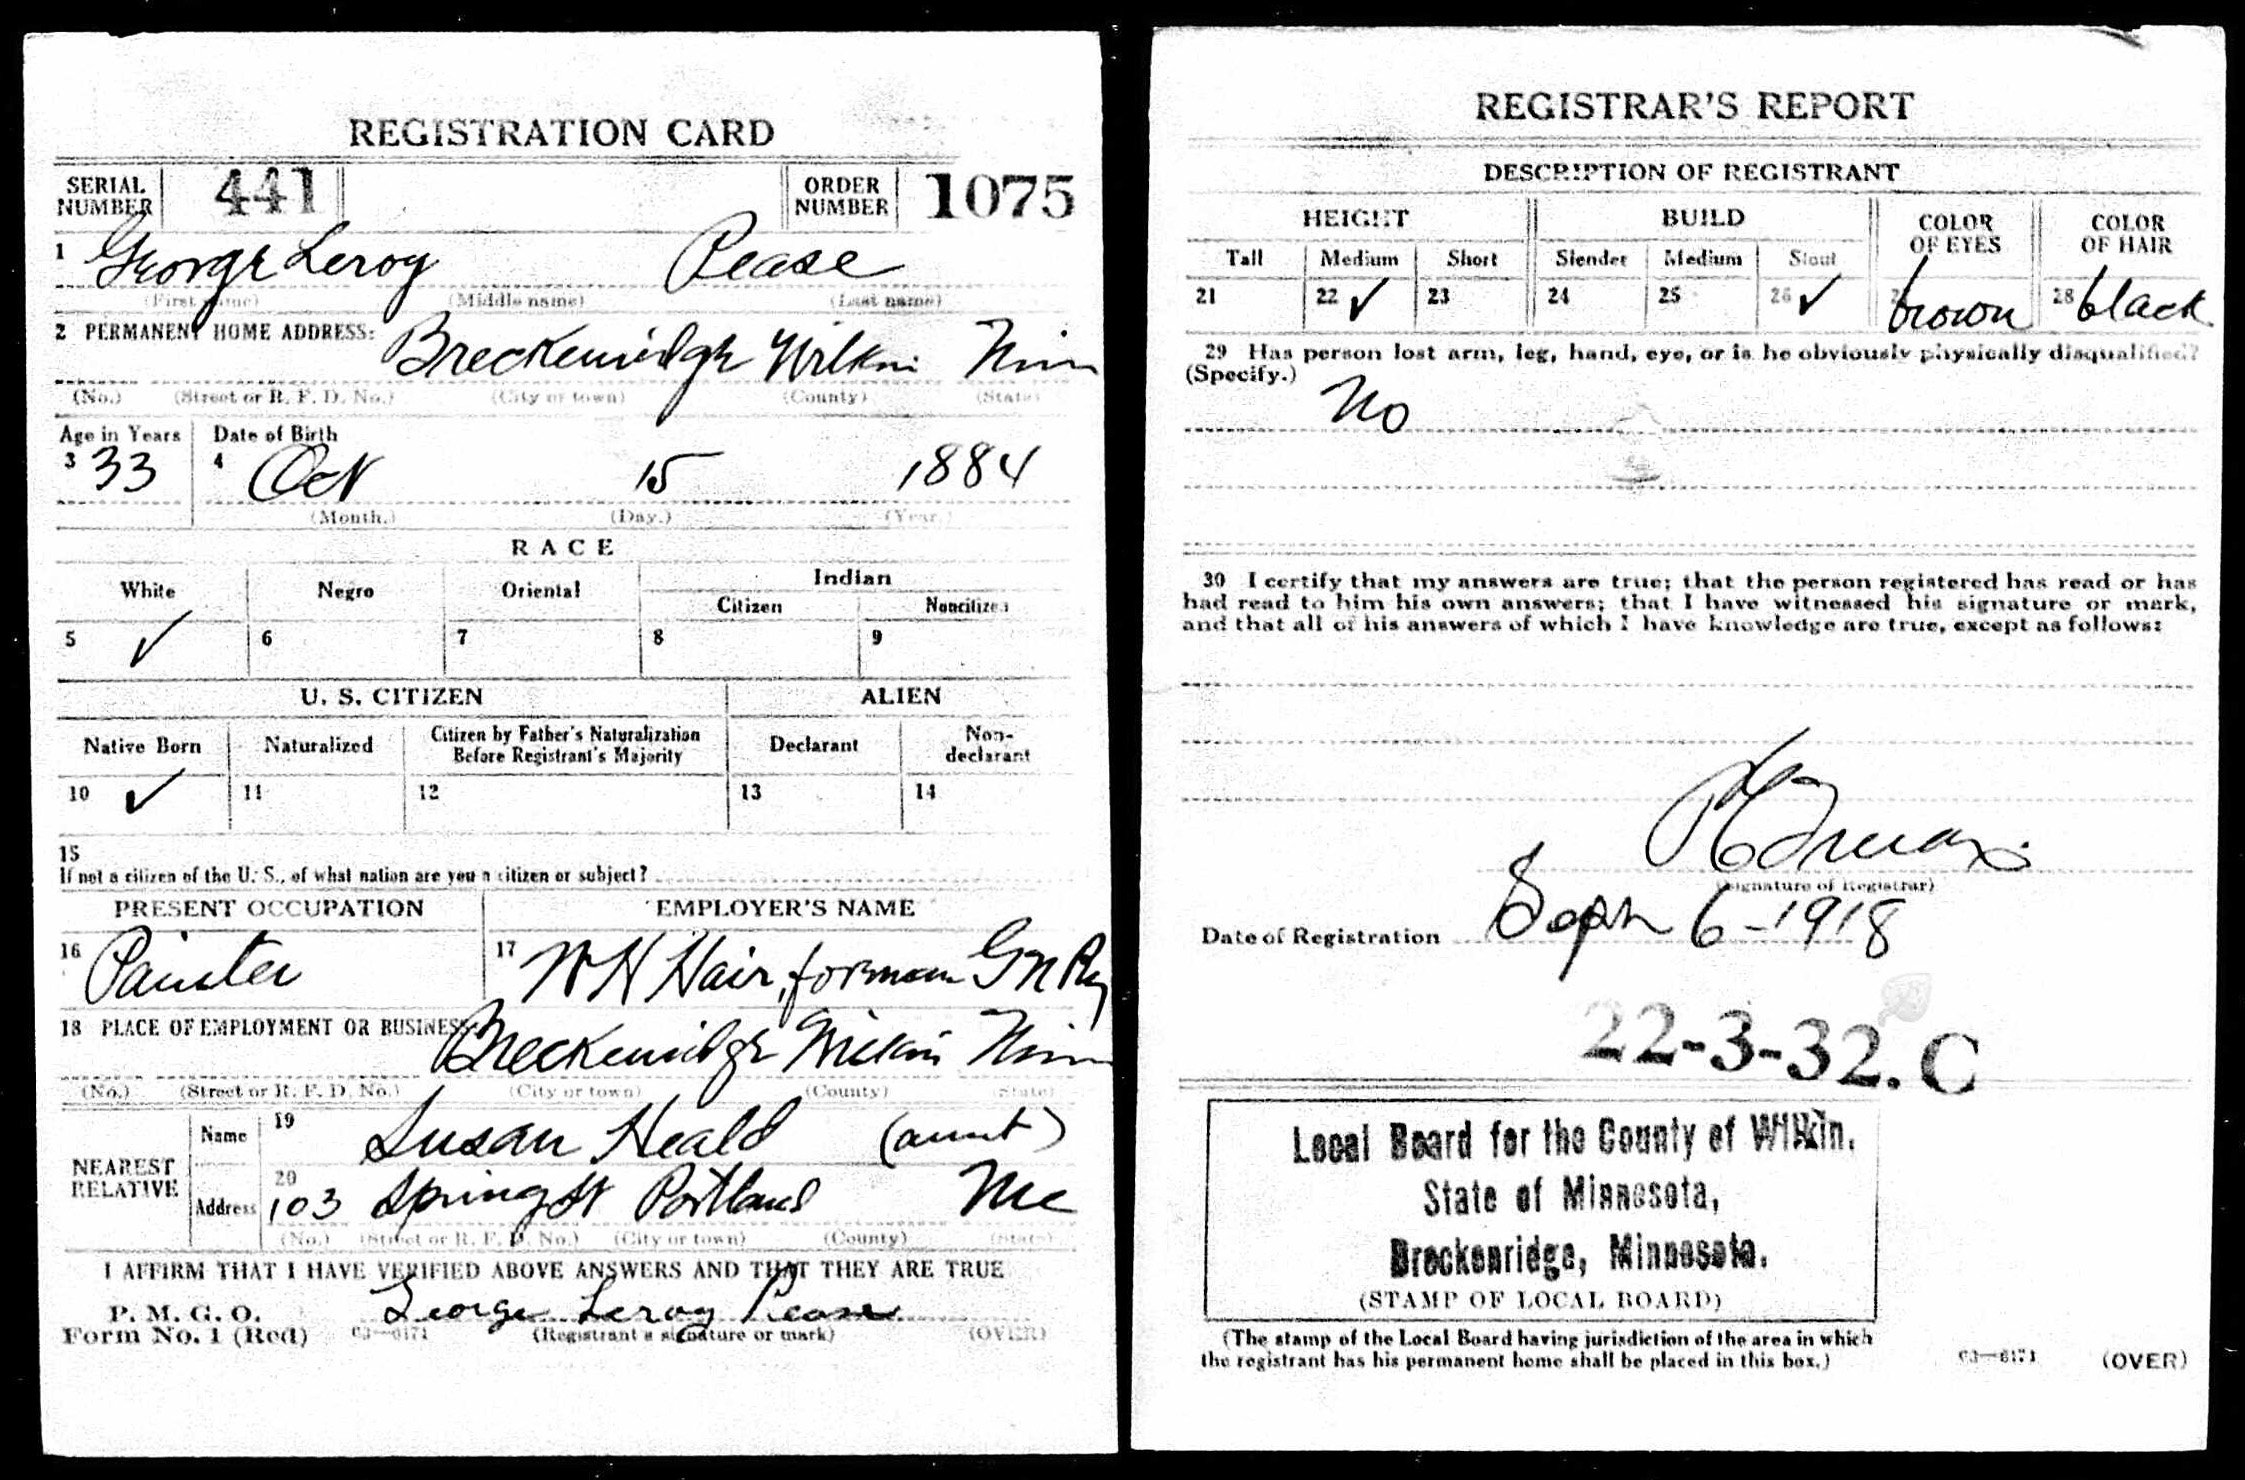 REGISTRATION CARD
SERIAL NUMBER 441 ORDER NUMBER 1075
1 George Leroy Pease
(First name) (Middle name) (Last name)
2 PERMANENT HOME ADDRESS: Breckenridge Wilkin Minn
(No.) (Street or R. F. D. No.) (City or town) (County) (State)
Age in Years Date of Birth
3 33 4 Oct 15 1884
(Month.) (Day.) (Year.)
RACE
White Negro Oriental Indian
Citizen Noncitizen
5 ✓ 6 7 8 9
U. S. CITIZEN ALIEN
Native Born Naturalized Citizen by Father's Naturalization Before Registrant's Majority Declarant Non-declarant
10 ✓ 11 12 13 14
15
If not a citizen of the U. S., of what nation are you a citizen or subject?
PRESENT OCCUPATION EMPLOYER'S NAME
16 Painter 17 W H Hair, forman G N Ry
18 PLACE OF EMPLOYMENT OR BUSINESS: Breckenridge Wilkin Minn
(No.) (Street or R. F. D. No.) (City or town) (County) (State)
NEAREST RELATIVE
Name 19 Susan Heald (aunt)
Address 20 103 Spring St Portland Me
(No.) (Street or R. F. D. No.) (City or town) (County) (State)
I AFFIRM THAT I HAVE VERIFIED ABOVE ANSWERS AND THAT THEY ARE TRUE
P. M. G. O.
Form No. 1 (Red) 03—6171 George Leroy Pease
(Registrant's signature or mark) (OVER)
REGISTRAR'S REPORT
DESCRIPTION OF REGISTRANT
HEIGHT BUILD COLOR OF EYES COLOR OF HAIR
Tall Medium Short Slender Medium Stout
21 22 ✓ 23 24 25 26 ✓ brown 28 black
29 Has person lost arm, leg, hand, eye, or is he obviously physically disqualified?
(Specify.) No
30 I certify that my answers are true; that the person registered has read or has
had read to him his own answers; that I have witnessed his signature or mark,
and that all of his answers of which I have knowledge are true, except as follows:
(Signature of Registrar)
Date of Registration Sept 6-1918
22-3-32. C
Local Board for the County of Wilkin.
State of Minnesota,
Breckenridge, Minnesota.
(STAMP OF LOCAL BOARD)
(The stamp of the Local Board having jurisdiction of the area in which
the registrant has his permanent home shall be placed in this box.)
03—6171 (OVER)